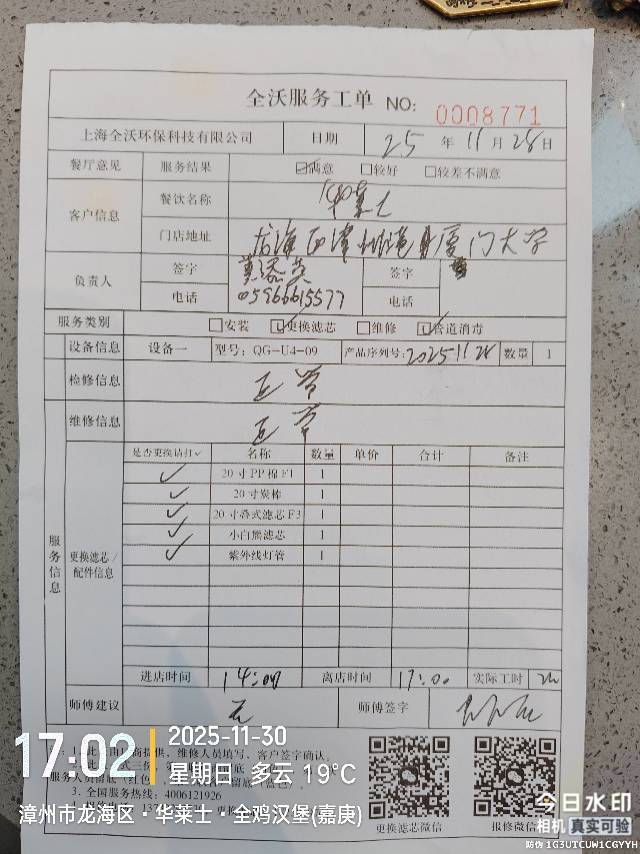 全沃服务工单 NO: 0008771
上海全沃环保科技有限公司 日期 25 年 11 月 28 日
餐厅意见 服务结果 ☑满意 □较好 □较差不满意
客户信息 餐饮名称 华莱士
门店地址 龙海 港 厦门大学
负责人 签字 签字
电话 05966615577 电话
服务类别 □安装 ☑更换滤芯 □维修 ☑管道消毒
设备信息 设备一 型号: QG-U4-09 产品序列号: 20251128 数量 1
检修信息 正常
维修信息 正常
服务信息
更换滤芯/配件信息
是否更换请打✓ 名称 数量 单价 合计 备注
✓ 20寸PP棉F1 1
✓ 20寸炭棒 1
✓ 20寸叠式滤芯F3 1
✓ 小白熊滤芯 1
✓ 紫外线灯管 1
进店时间 14:00 离店时间 17:00 实际工时
师傅建议 无 师傅签字
提供，维修人员填写、客户签字确认。
3. 全国服务热线: 4006121926
更换滤芯微信 报修微信
17:02 2025-11-30
星期日 多云 19°C
漳州市龙海区·华莱士·全鸡汉堡(嘉庚)
今日水印
相机 真实可验
防伪 1G3UTCUW1CGYYH